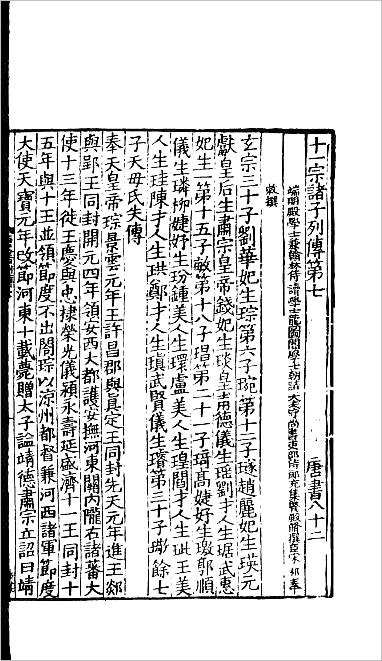 十一宗諸子列傳第七　唐書八十二
端明殿學士兼翰林侍讀學士龍圖閣學士朝請大夫守尚書吏部侍郎充集賢殿脩撰臣宋祁奉
敕撰
玄宗三十子劉華妃生琮第六子琬第十二子璲趙麗妃生瑛元
獻皇后生肅宗皇帝錢妃生琰皇甫德儀生瑤劉才人生琚武惠
妃生一第十五子敏第十八子瑁第二十一子琦高婕妤生璬郭順
儀生璘柳婕妤生玢鍾美人生環盧美人生瑝閻才人生玼王美
人生珪陳才人生珙鄭才人生瑱武賢儀生璿第三十子璥餘七
子天母氏失傳
奉天皇帝琮景雲元年王許昌郡與真定王同封先天元年進王郯
與郢王同封開元四年領安西大都護安撫河東關内隴右諸蕃大
使十三年徙王慶與忠棣榮光儀潁永壽延盛濟十一王同封十
五年與十王並領節度不出閤琮以涼州都督兼河西諸軍節度
大使天寶元年改節河東十載薨贈太子謚靖德肅宗立詔曰靖